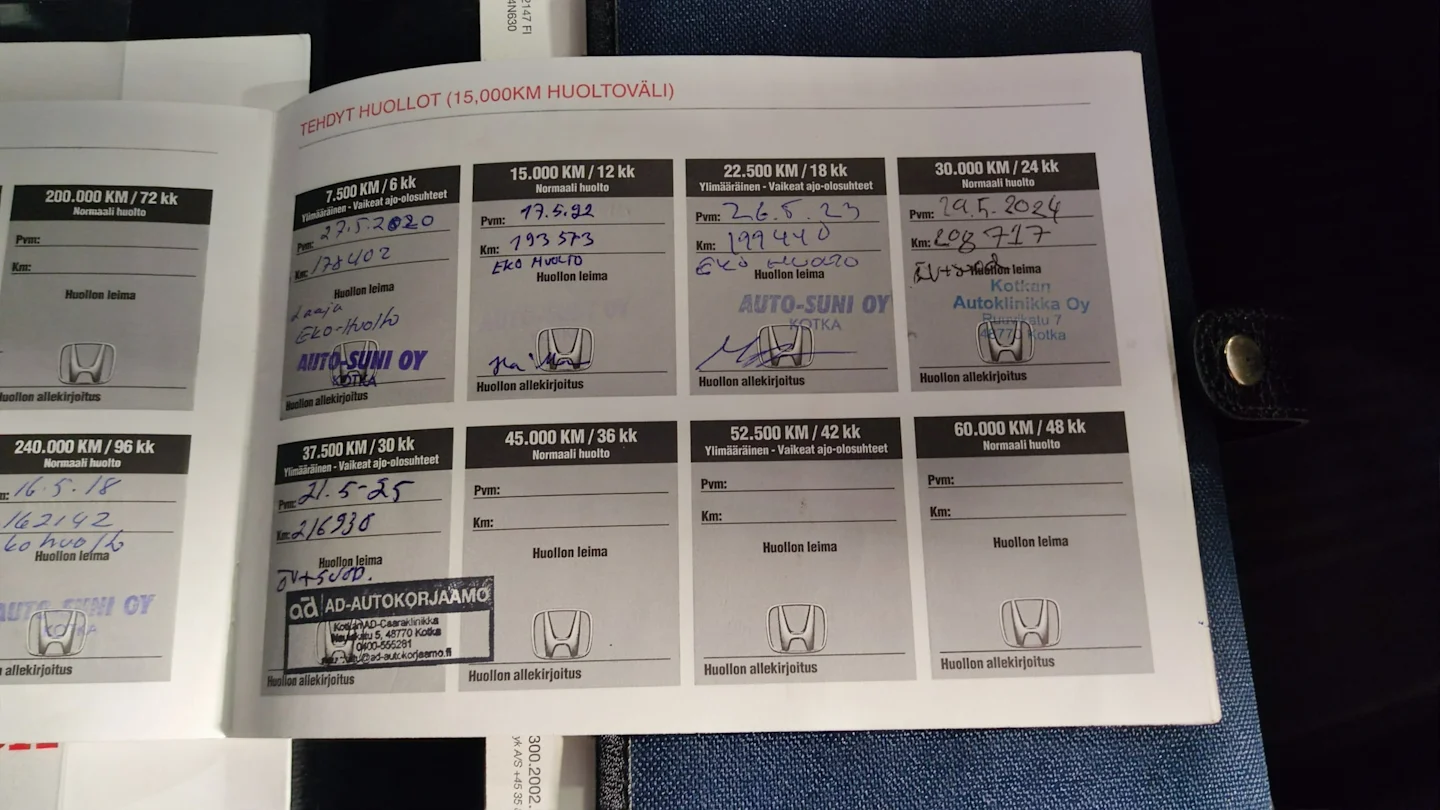 2147 FI
4N630
TEHDYT HUOLLOT (15,000KM HUOLTOVÄLI)
200.000 KM / 72 kk
Normaali huolto
Pvm:
Km:
Huollon leima
Huollon allekirjoitus
240.000 KM / 96 kk
Normaali huolto
16.5.18
162142
Huollon leima
AUTO-SUNI OY
KOTKA
allekirjoitus
7.500 KM / 6 kk
Ylimääräinen - Vaikeat ajo-olosuhteet
Pvm: 27.5.2020
Km: 178402
Huollon leima
Laaja
Eko-Huolto
AUTO-SUNI OY
KOTKA
Huollon allekirjoitus
15.000 KM / 12 kk
Normaali huolto
Pvm: 17.5.22
Km: 193573
EKO HUOLTO
Huollon leima
Huollon allekirjoitus
22.500 KM / 18 kk
Ylimääräinen - Vaikeat ajo-olosuhteet
Pvm: 26.5.23
Km: 199440
EKO HUOLTO
Huollon leima
AUTO-SUNI OY
KOTKA
Huollon allekirjoitus
30.000 KM / 24 kk
Normaali huolto
Pvm: 29.5.2024
Km: 208717
Huollon leima
Kotkan
Autoklinikka Oy
Ruuvikatu 7
48770 Kotka
Huollon allekirjoitus
37.500 KM / 30 kk
Ylimääräinen - Vaikeat ajo-olosuhteet
Pvm: 21.5-25
Km: 216930
Huollon leima
ÖV+SUOD.
ad AD-AUTOKORJAAMO
Kotkan AD-Csaraklinikka
5, 48770 Kotka
0400-555281
@ad-autokorjaamo.fi
Huollon allekirjoitus
45.000 KM / 36 kk
Normaali huolto
Pvm:
Km:
Huollon leima
Huollon allekirjoitus
52.500 KM / 42 kk
Ylimääräinen - Vaikeat ajo-olosuhteet
Pvm:
Km:
Huollon leima
Huollon allekirjoitus
60.000 KM / 48 kk
Normaali huolto
Pvm:
Km:
Huollon leima
Huollon allekirjoitus
300.2002.
yk A/S +45 35